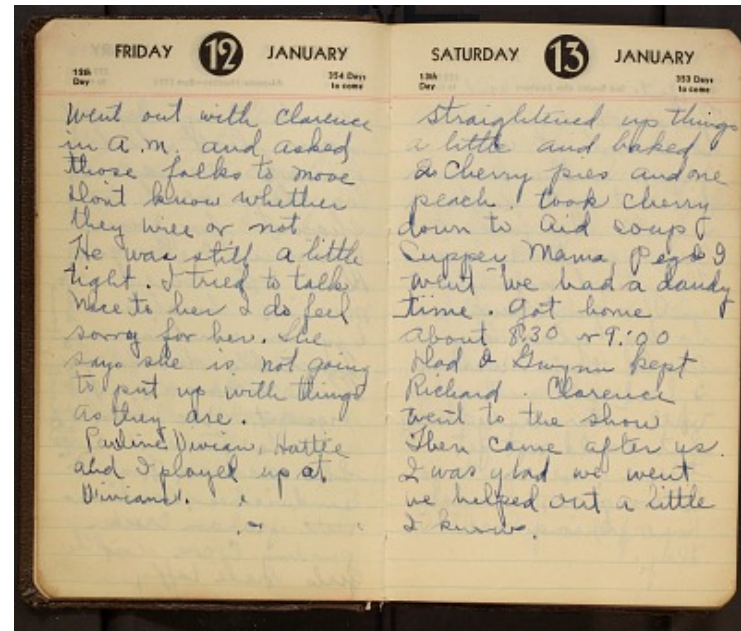 FRIDAY 12 JANUARY
12th Day
354 Days to come
Went out with Clarence
in A.M. and asked
those folks to move
Don't know whether
they will or not
He was still a little
tight. I tried to talk
nice to her I do feel
sorry for her. She
says she is not going
to put up with things
as they are.
Pauline Vivian, Hattie
and I played up at
Vivians.
SATURDAY 13 JANUARY
13th Day
353 Days to come
straightened up things
a little and baked
2 cherry pies and one
peach. took cherry
down to Aid soup
Supper Mama Peg & I
went we had a dandy
time. Got home
about 8:30 or 9:00
Had & Gwynn kept
Richard. Clarence
went to the show
Then came after us.
I was glad we went
we helped out a little
I know.